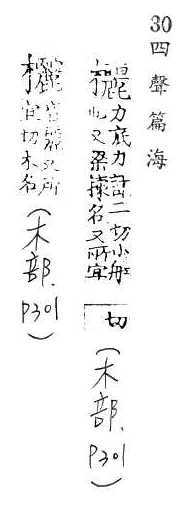 30
四聲篇海
欐 力底力計二切小船
也又梁棟名又所宜
切
（木部. P301）
欐 又所
宜切木名
（木部. P301）